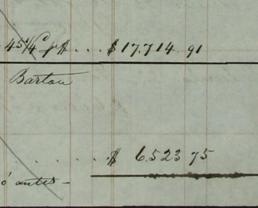 45 1/4 C p $ . . . $ 17.714 91
Barton
. . . . . . $ 6523 75